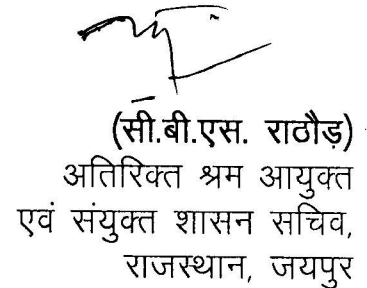 (सी.बी.एस. राठौड़)
अतिरिक्त श्रम आयुक्त
एवं संयुक्त शासन सचिव,
राजस्थान, जयपुर